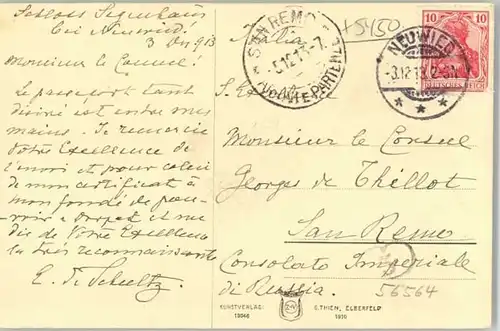 Schloss Segenhaus
bei Neuwied.
3 Dez 913
Monsieur le Consul!
Le passeport tant
désiré est entre mes
mains. Je remercie
Votre Excellence de
l'envoi et pour celui
de mon certificat à
mon fondé de pou-
voir à et me
dis de Votre Excellence
la très reconnaissante
E. de Schultz.
Italia
+8450
SAN REMO
5.12.13-7
NEUWIED
-3.12.13.2-3N.
10 10
DEUTSCHES REICH
S. E.
Monsieur le Consul
Georges de Thillot
San Remo
Consolato Imperiale
di Russia.
56564
KUNSTVERLAG:
13046
C. THIEN, ELBERFELD
1910